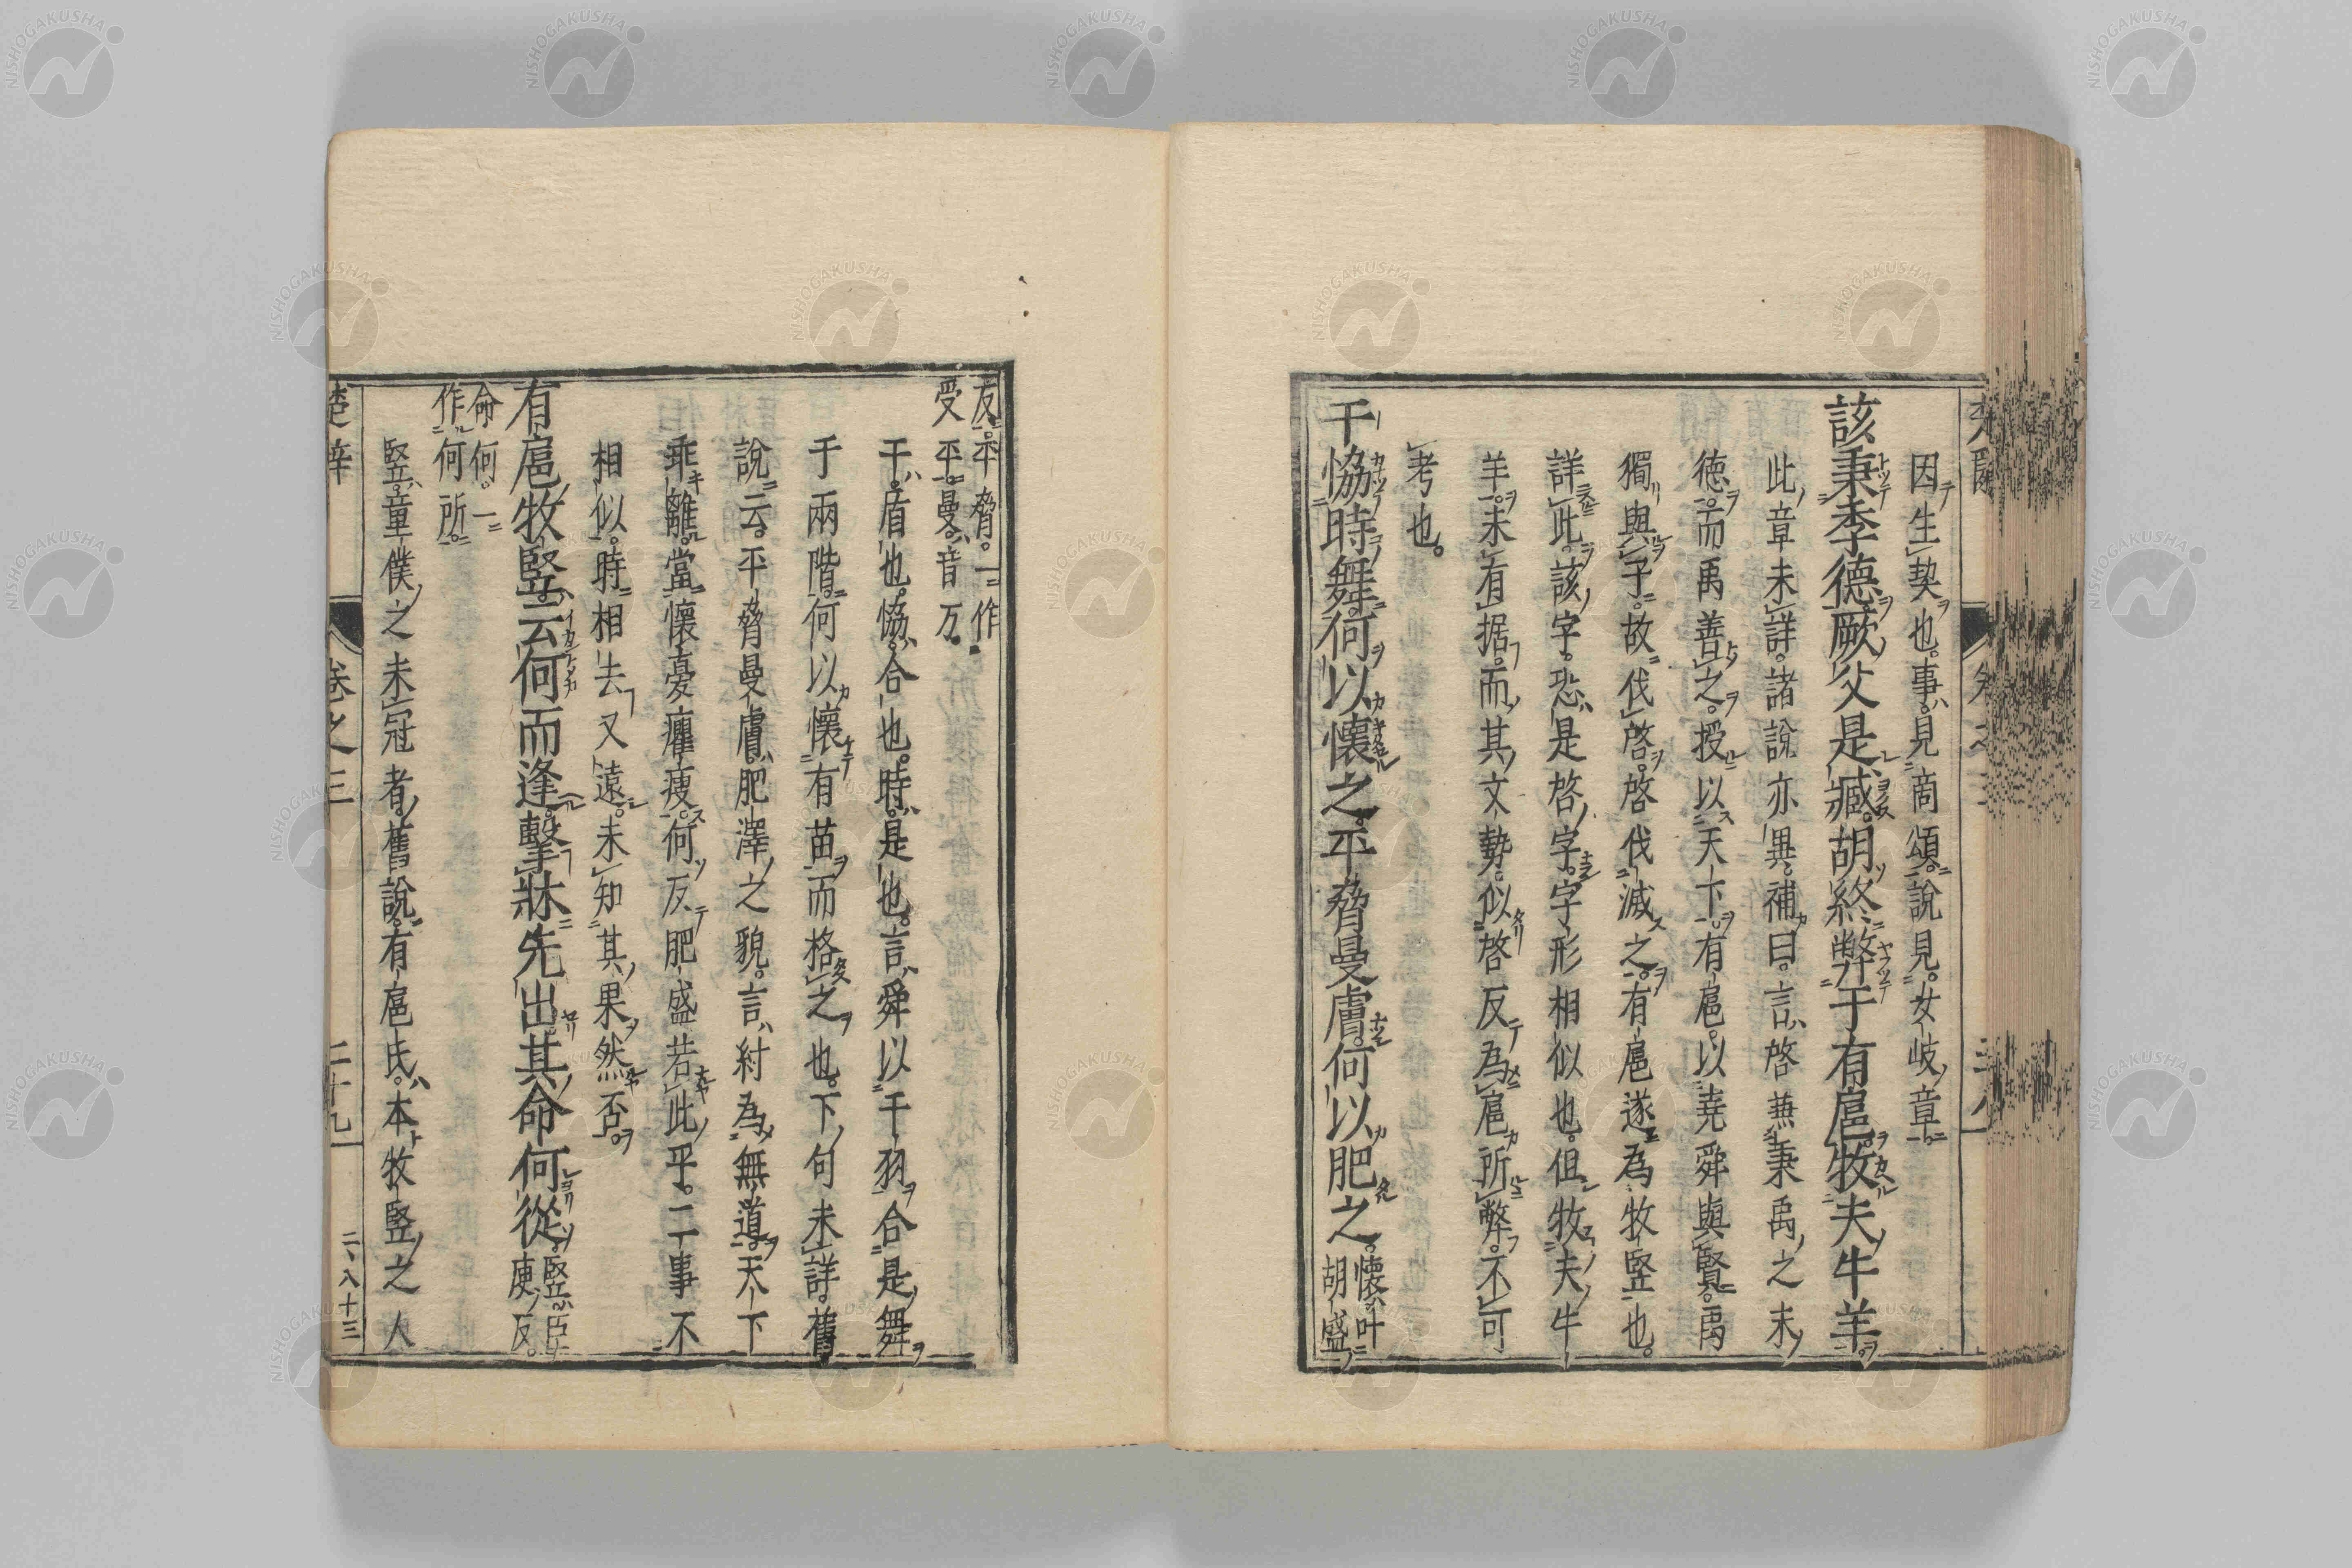 因生契也事見商頌說見女岐章
該秉季德厥父是臧胡終弊于有扈牧夫牛羊
此章未詳諸說亦異補曰言啓兼秉禹之末
德而禹善之授以天下有扈以堯舜與賢禹
獨與子故伐啓啓伐滅之有扈遂爲牧竪也
詳此該字恐是啓字字形相似也但牧夫牛
羊未有据而其文勢似啓反爲扈所弊不可
考也
干恊時舞何以懷之平脅曼膚何以肥之懷叶
胡盛
反平脅一作
受平曼音万
干盾也恊合也時是也言舜以干羽合是舞
于兩階何以懷有苗而格之也下句未詳舊
說云平脅曼膚肥澤之貌言紂爲無道天下
乖離當懷憂癯瘦何反肥盛若此乎二事不
相似時相去又遠未知其果然否
有扈牧竪云何而逢擊牀先出其命何從竪臣
庾反
命何一
作何所
竪童僕之未冠者舊說有扈氏本牧竪之人
楚辭 卷之三 二十九 二ノ八十三
NISHOGAKUSHA